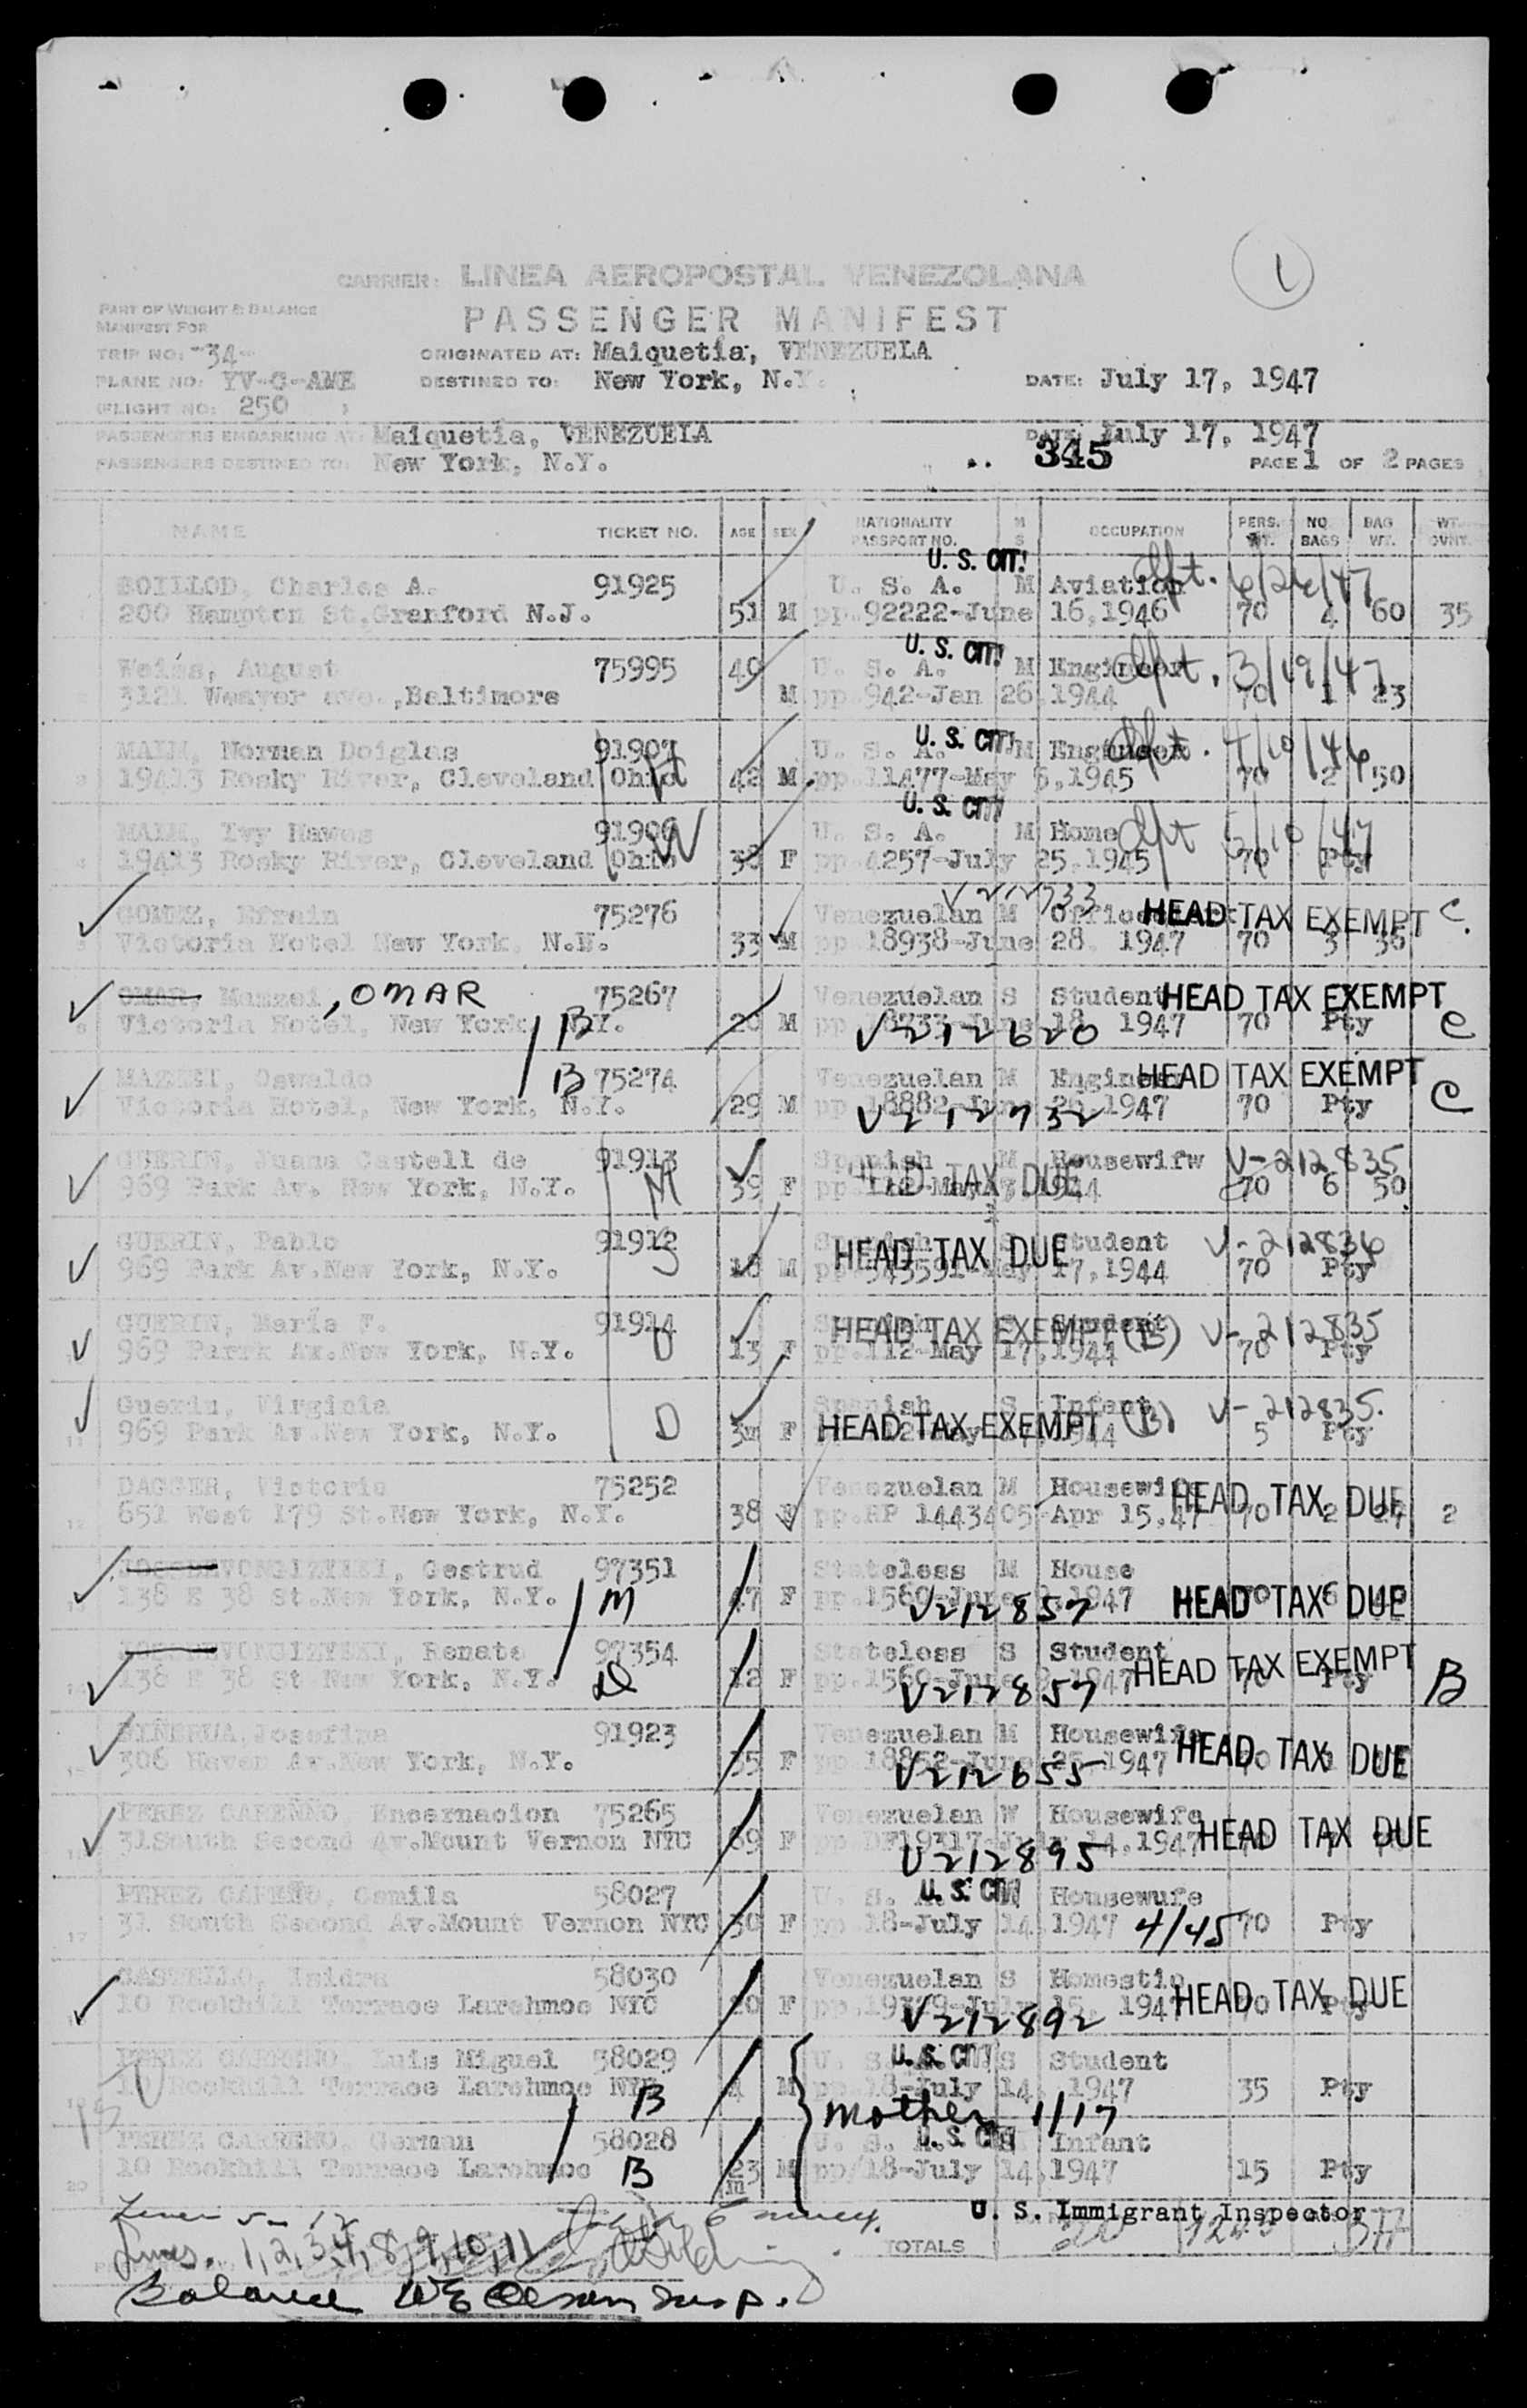 1
CARRIER: LINEA AEROPOSTAL VENEZOLANA
PART OF WEIGHT & BALANCE
MANIFEST FOR
PASSENGER MANIFEST
TRIP NO: -34-
ORIGINATED AT: Maiquetia, VENEZUELA
PLANE NO: YV-C-AME
DESTINED TO: New York, N.Y.
DATE: July 17, 1947
(FLIGHT NO: 250 )
PASSENGERS EMBARKING AT: Maiquetia, VENEZUELA
DATE: July 17, 1947
PASSENGERS DESTINED TO: New York, N.Y.
345
PAGE 1 OF 2 PAGES
NAME TICKET NO. AGE SEX NATIONALITY PASSPORT NO. M S OCCUPATION PERS. WT. NO. BAGS BAG WT. WT. OVNT.
U. S. CIT!
BOILLOD, Charles A. 91925 U. S. A. M Aviation dpt. 6/26/47
200 Hampton St.Granford N.J. 51 M pp.92222-June 16,1946 70 4 60 35
U. S. CIT!
Weiss, August 75995 49 U. S. A. M Engineer dpt. 3/19/47
3121 Weaver ave.,Baltimore M pp.942-Jan 26,1944 70 1 23
U. S. CIT!
MAIN, Norman Doiglas 91907 U. S. A. M Engineer dpt. 4/10/46
19413 Rosky River, Cleveland Ohio H 42 M pp.11477-May 5,1945 70 2 50
U. S. CIT!
MAIN, Ivy Hawes 91906 U. S. A. M Home dpt 5/10/47
19413 Rosky River, Cleveland Ohio W 38 F pp.4257-July 25,1945 70 Pty
V 212733
GOMEZ, Efrain 75276 Venezuelan M HEAD TAX EXEMPT C.
Victoria Hotel New York, N.Y. 33 M pp.18938-June 28, 1947 70 3 36
OMAR, Manzei, OMAR 75267 Venezuelan S Student HEAD TAX EXEMPT
Victoria Hotel, New York, N.Y. B 20 M pp.18733-June 18, 1947 70 Pty C
V212620
MAZZEI, Oswaldo B 75274 Venezuelan M Engineer HEAD TAX EXEMPT
Victoria Hotel, New York, N.Y. 29 M pp.18882-June 26,1947 70 Pty C
V212732
GUERIN, Juana Castell de 91913 Spanish M Housewifw V-212835
HEAD TAX DUE
969 Park Av. New York, N.Y. M 39 F pp.112-May 17,1944 70 6 50
GUERIN, Pablo 91912 Spanish S Student V-212836
HEAD TAX DUE
969 Park Av.New York, N.Y. S 18 M pp.543591-May 17,1944 70 Pty
GUERIN, Maria F. 91914 Spanish S Student V-212835
HEAD TAX EXEMPT (B)
969 Parrk Av.New York, N.Y. D 13 F pp.112-May 17,1944 70 Pty
Guerin, Virginia Spanish S Infant V-212835.
HEAD TAX EXEMPT (B)
969 Park Av.New York, N.Y. D 3m F 5 Pty
DAGGER, Victoria 75252 Venezuelan M Housewife HEAD TAX DUE
651 West 179 St.New York, N.Y. 38 F pp.RP 1443405-Apr 15,47 70 2 27 2
Gestrud 97351 Stateless M House
138 E 38 St.New York, N.Y. M 47 F pp.1560-June 9,1947 HEAD TAX DUE
V212857
Renate 97354 Stateless S Student
138 E 38 St New York, N.Y. D 12 F pp.1560-June 9,1947 HEAD TAX EXEMPT B
V212857
Josefina 91923 Venezuelan M Housewife
306 Haven Av.New York, N.Y. 35 F pp.18852-June 25,1947 HEAD TAX DUE
V212655
PEREZ CAREÑNO, Encarnacion 75265 Venezuelan W Housewife
31South Second Av.Mount Vernon NYC 69 F pp DF19317-July 14,1947 HEAD TAX DUE
V212895
U. S. CIT!
PEREZ CAREÑO, Camila 58027 U. S. A. Housewufe
31 South Second Av.Mount Vernon NYC 30 F pp 18-July 14,1947 4/45 70 Pty
CASTILLO, Isidra 58030 Venezuelan S Homestic
10 Rockhill Terrace Larchmoc NYC 20 F pp.19379-July 15, 1947 HEAD TAX DUE
V212892
U. S. CIT!
PEREZ CARREÑO, Luis Miguel 58029 S Student
10 Rockhill Terrace Larchmoc NYC B 4 M pp.18-July 14, 1947 35 Pty
Mother 1/17
U. S. CIT!
PEREZ CARREÑO, German 58028 Infant
10 Rockhill Terrace Larchmoc B 23 m M pp/18-July 14,1947 15 Pty
U. S. Immigrant Inspector
Lines. 1,2,3,4,8,9,10,11
TOTALS
Balance WE Olsen Insp.